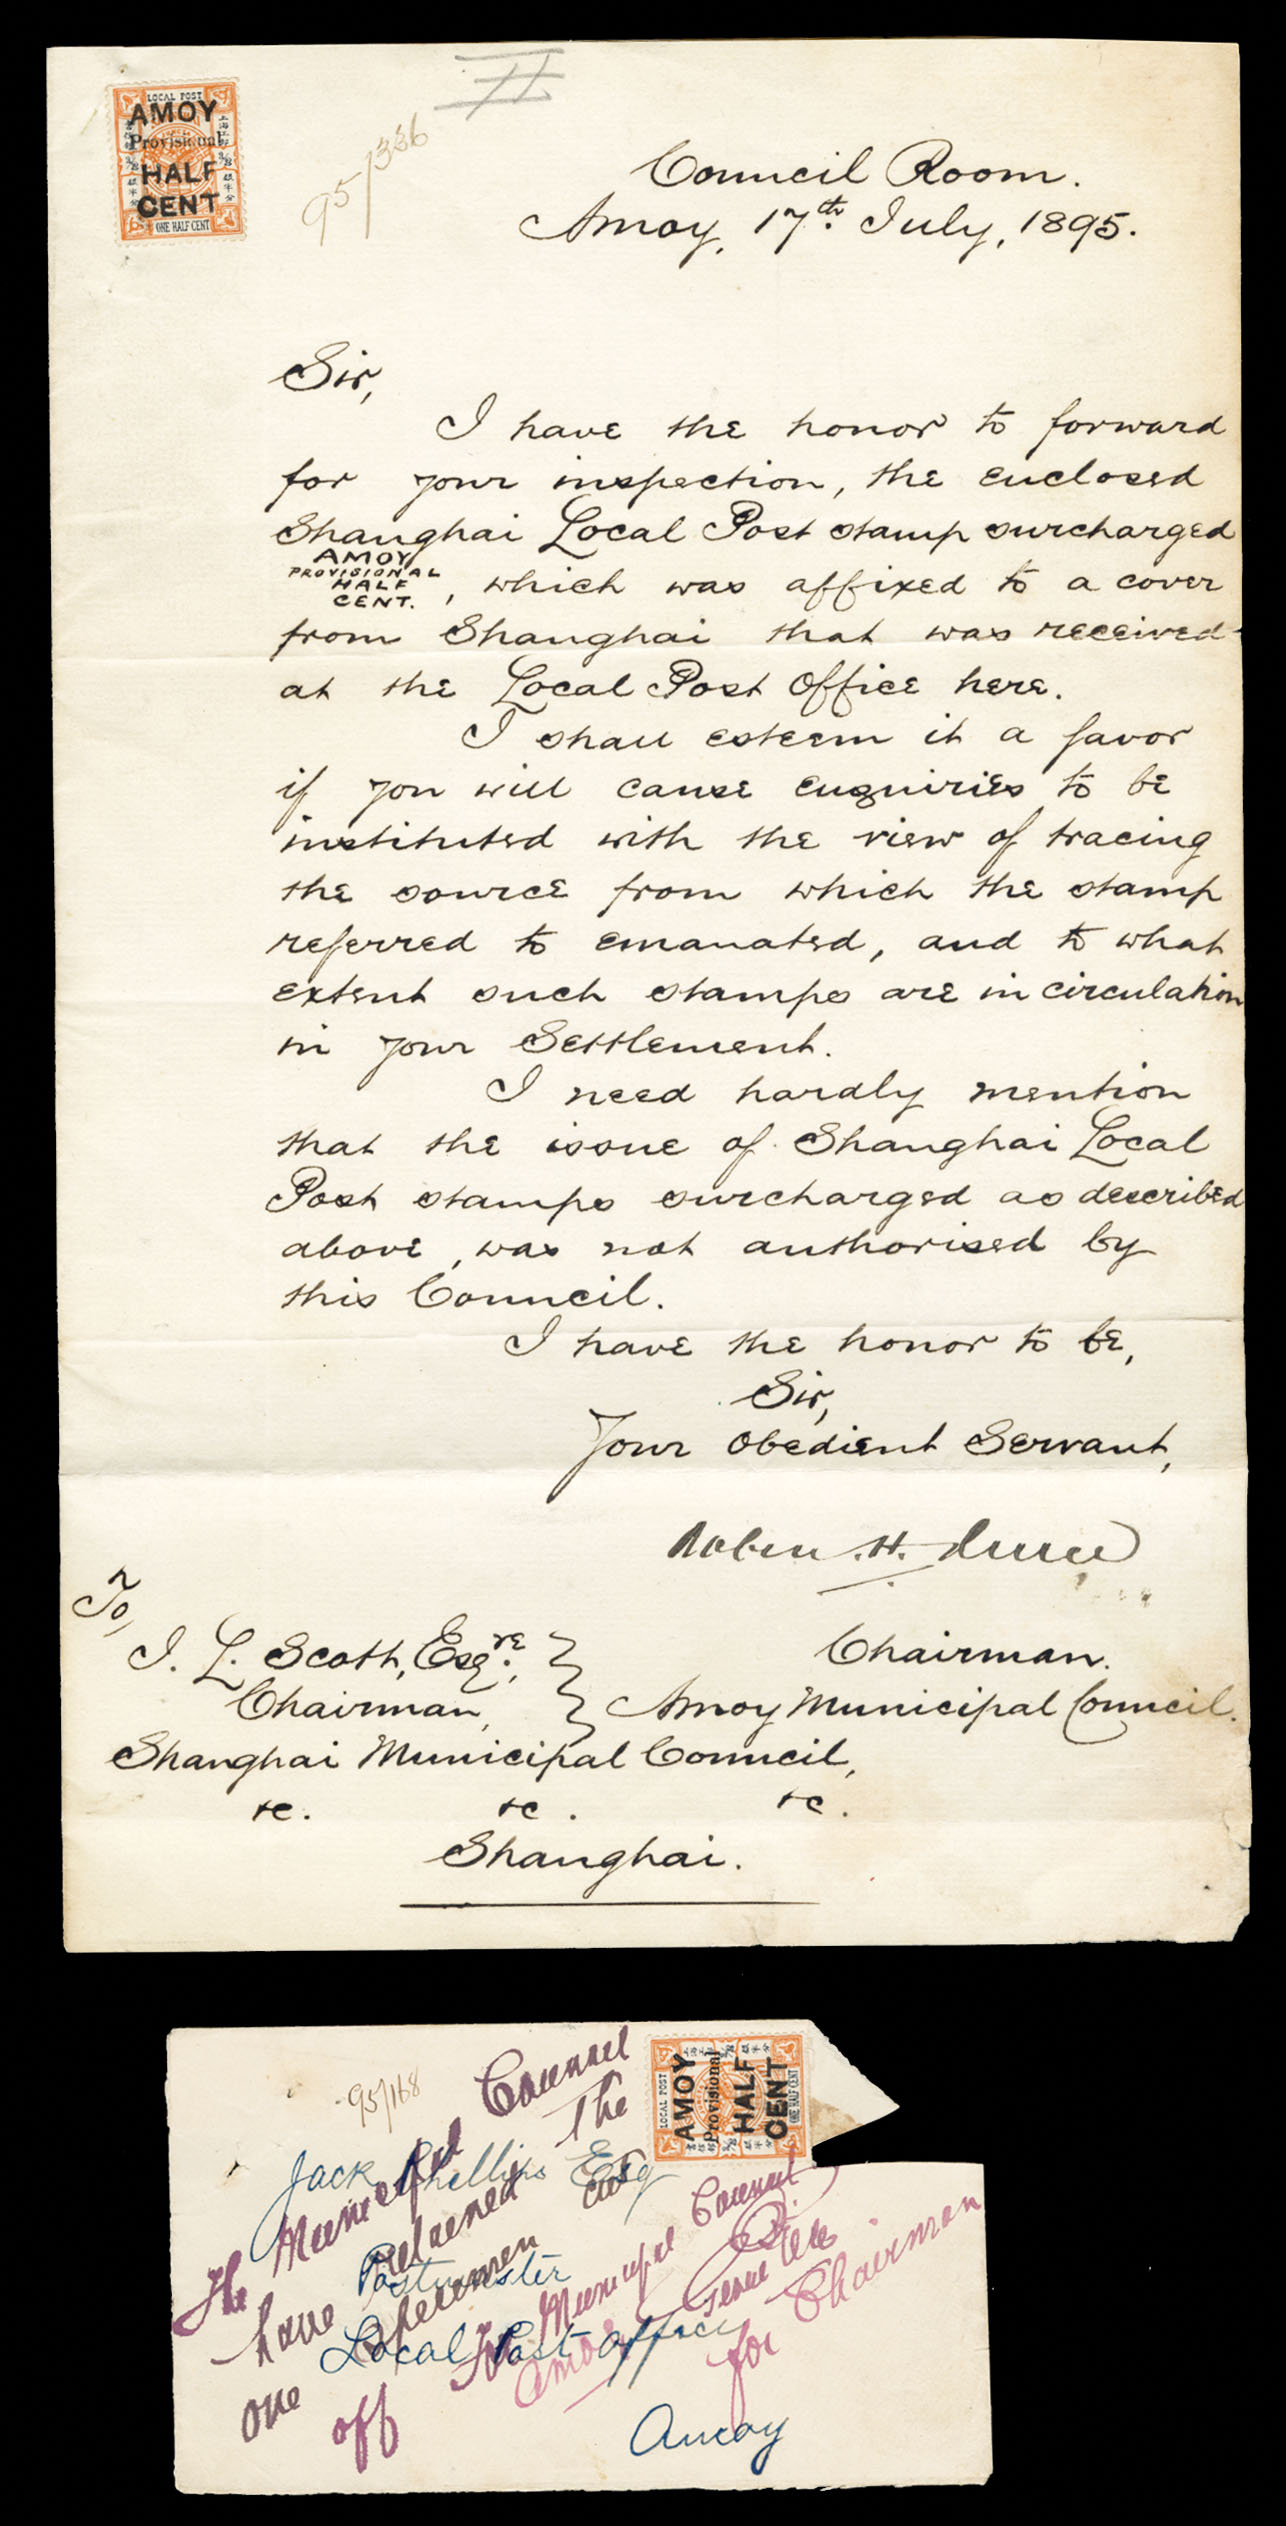 LOCAL POST
AMOY
Provisional
HALF
CENT
ONE HALF CENT
II
95/336
Council Room.
Amoy, 17th July, 1895.
Sir,
I have the honor to forward
for your inspection, the enclosed
Shanghai Local Post stamp surcharged
AMOY
PROVISIONAL
HALF
CENT.
, which was affixed to a cover
from Shanghai that was received
at the Local Post Office here.
I shall esteem it a favor
if you will cause enquiries to be
instituted with the view of tracing
the source from which the stamp
referred to emanated, and to what
extent such stamps are in circulation
in your Settlement.
I need hardly mention
that the issue of Shanghai Local
Post stamps surcharged as described
above, was not authorised by
this Council.
I have the honor to be,
Sir,
Your Obedient Servant,
H.
Chairman.
Amoy Municipal Council.
To,
J. L. Scott, Esqre.,
Chairman,
Shanghai Municipal Council,
&c. &c. &c.
Shanghai.
LOCAL POST
AMOY
Provisional
HALF
CENT
ONE HALF CENT
95/168
Jack Phillips Esq
Postmaster
Local Post office
Amoy
The Municipal Council
have retained the
one specimen cut
off
for Chairman
The Municipal Council
Amoy